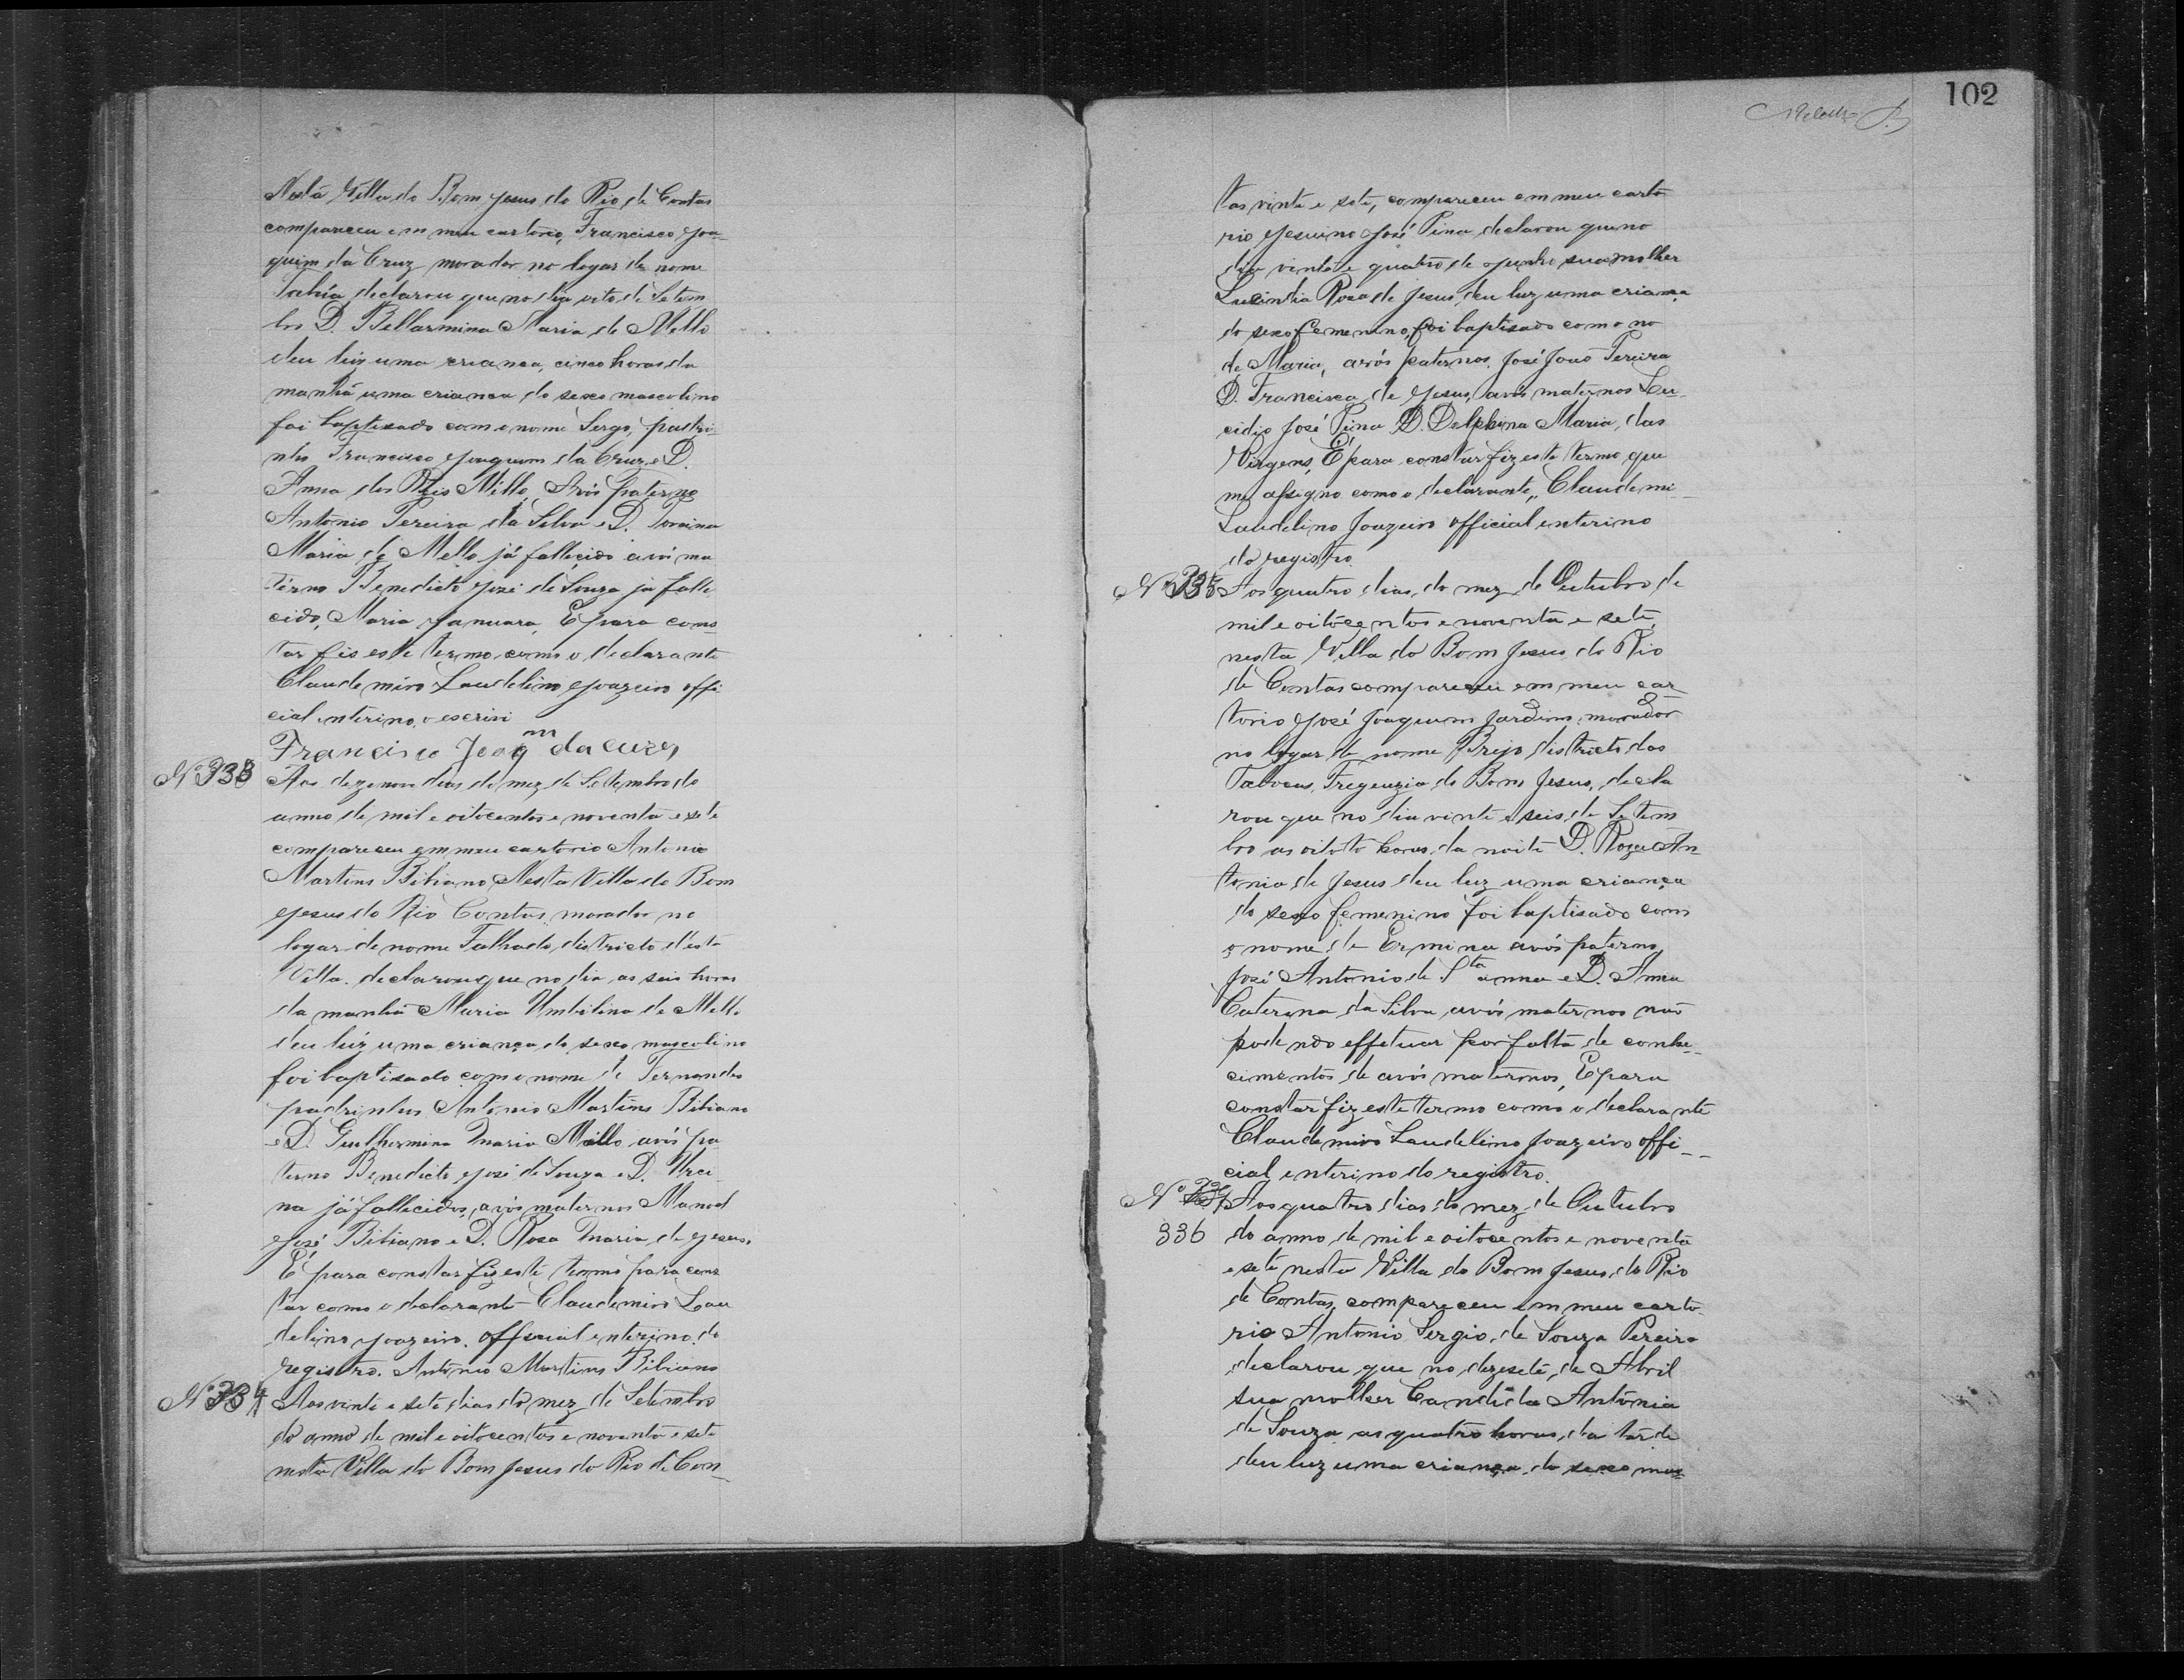 Nesta Villa do Bom Jesus do Rio de Contas
compareceu em meu cartorio, Francisco Joa-
quim da Cruz morador no logar de nome
declarou que no dia oito de Setem
bro D. Bellarmina Maria de Mello
deu luz uma criança, cinco horas da
manhã uma criança do sexo masculino
foi baptisado com o nome Sergo, padri-
nho Francisco Joaquim da Cruz e D.
Anna dos Reis Mello, Avós paterno
Antonio Pereira da Silva e D.
Maria de Mello já fallecido avós ma
terno Benedicto José de Souza já falle
cido, Maria Januara, E para cons
tar fis este termo como o declarante
Claudemiro Laudelino Joazeiro offi
cial interino o escrivi
Francisco Joaqm da cuzes
No 333 Aos dezenove dias do mez de Setembro do
anno de mil e oitocentos e noventa e sete
compareceu em meu cartorio Antonio
Martins Bibiano, Nesta Villa do Bom
Jesus do Rio Contas, morador no
logar de nome Talhado, districto desta
Villa. declarou que no dia as seis horas
da manhã Maria Umbilina de Mello
deu luz uma criança do sexo masculino
foi baptisado com o nome de Fernando
padrinhos Antonio Martins Bibiano
e D. Guilhermina Maria Mello avós pa
terno Benedicto José de Souza e D. Urci
na já fallecidos, avós maternos Manoel
José Bibiano e D. Rosa Maria de Jesus.
E para constar fiz este termo para cons
tar como o declarante Claudemiro Lau
delino Joazeiro. official interino do
registro. Antonio Martins Bibiano
No 334 Aos vinte e sete dias do mez de Setembro
do anno de mil e oitocentos e noventa e sete
nesta Villa do Bom Jesus do Rio de Con-
102
tas vinte e sete, compareceu em meu carto
rio Jesuino José Pina declarou que no
dia vinte e quatro de Junho sua molher
Lucindia Rosa de Jesus, deu luz uma criança
do sexo femenino, foi baptisado com o no
de Maria, avós paternos, José João Pereira
D. Francisca de Jesus, avós maternos Leu-
cidio José Pina D. Delphina Maria, das
Virgens, E para constar fiz este termo que
me assigno como o declarante, Claudemi-
Laudelino Joazeiro official interino
do registro.
No 335 Aos quatro dias do mez de Outubro de
mil e oitocentos e noventa e sete,
nesta Villa do Bom Jesus do Rio
de Contas compareceu em meu car
torio José Joaquim Jardim, morador
no logar de nome Brejo districto das
Tabocas, Freguezia do Bom Jesus, decla
rou que no dia vinte e seis de Setem
bro as oito horas da noite D. Roza An-
tonia de Jesus deu luz uma criança
do sexo femenino foi baptisado com
o nome de Ermina avós paterno,
José Antonio de Sta anna e D. Anna
Caterina da Silva, avós maternos não
podendo effetuar por falta de conhe-
cimentos de avós maternos, E para
constar fiz este termo como o declarante
Claudemiro Laudelino Joazeiro offi-
cial interino do registro.
No Aos quatro dias do mez de Outubro
336 do anno de mil e oitocentos e noventa
e sete nesta Villa do Bom Jesus do Rio
de Contas, compareceu em meu carto
rio Antonio Sergio de Souza Pereira
declarou que no dezesete de Abril
sua molher Candida Antonia
de Souza as quatro horas da tarde
deu luz uma criança do sexo mas-